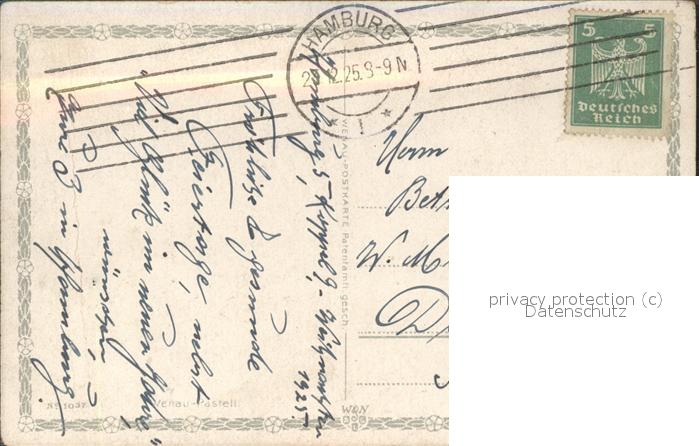 HAMBURG
2 .12.25.8-9 N
* 1 *
5 5
Deutsches
Reich
Hamburg, 5 Koppel 9 - Weihnachten
1925.
Fröhliche & gesunde
Feiertage, nebst
"Viel Glück im neuen Jahre"
wünschen
Eure 3 in Hamburg.
WENAU-POSTKARTE Patentamtl. gesch.
Herrn
W. M
D
privacy protection (c)
Datenschutz
Wenau-Pastell.